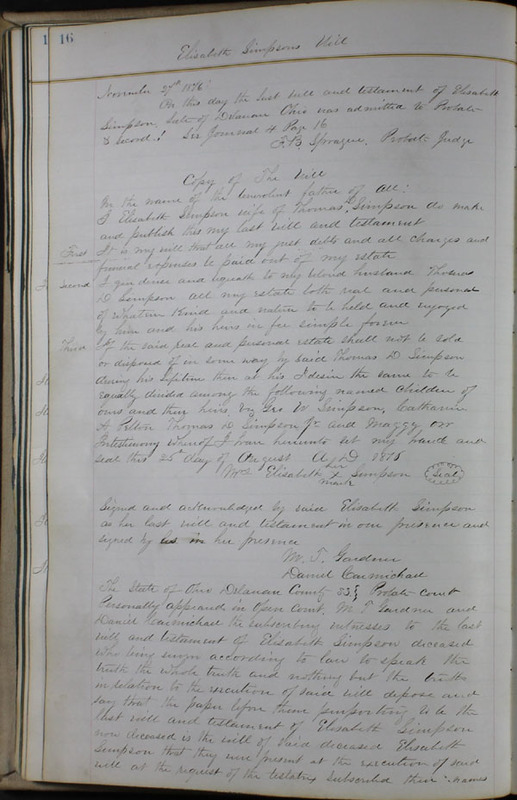 1 16
Elisabeth Simpsons Will
November 27th 1876
On this day the last will and testament of Elisabeth
Simpson, late of Delaware Ohio was admitted to Probate
& Record. See Journal 4 Page 16
F.B. Sprague, Probate Judge
Copy of The Will
In the name of the benevolent father of all:
I Elisabeth Simpson wife of Thomas Simpson do make
and publish this my last will and testament
First It is my will that all my just debts and all charges and
funeral expenses be paid out of my estate
Second I give devise and bequeath to my beloved husband Thomas
D Simpson all my estate both real and personal
of whatever kind and nature to be held and enjoyed
by him and his heirs in fee simple forever
Third If the said real and personal estate shall not be sold
or disposed of in some way by said Thomas D Simpson
during his lifetime then at his I desire the same to be
equally divided among the following named children of
ours and their heirs, viz Geo W Simpson, Catharine
A Thomas D Simpson Jr and Maggy
In testimony whereof I have hereunto set my hand and
seal this 25th day of August A.D 1875
Mrs Elisabeth her x mark Simpson Seal
Signed and acknowledged by said Elisabeth Simpson
as her last will and testament in our presence and
signed by us in her presence
M. T. Gardner
Daniel Carmichael
The State of Ohio Delaware County SS} Probate Court
Personally appeared in Open Court, M. T. Gardner and
Daniel Carmichael the subscribing witnesses to the last
will and testament of Elisabeth Simpson deceased
who being sworn according to law to speak the
truth the whole truth and nothing but the truth
in relation to the execution of said will depose and
say that the paper before them purporting to be the
last will and testament of Elisabeth Simpson
now deceased is the will of said deceased Elisabeth
Simpson that they were present at the execution of said
will at the request of the testatrix subscribed their names